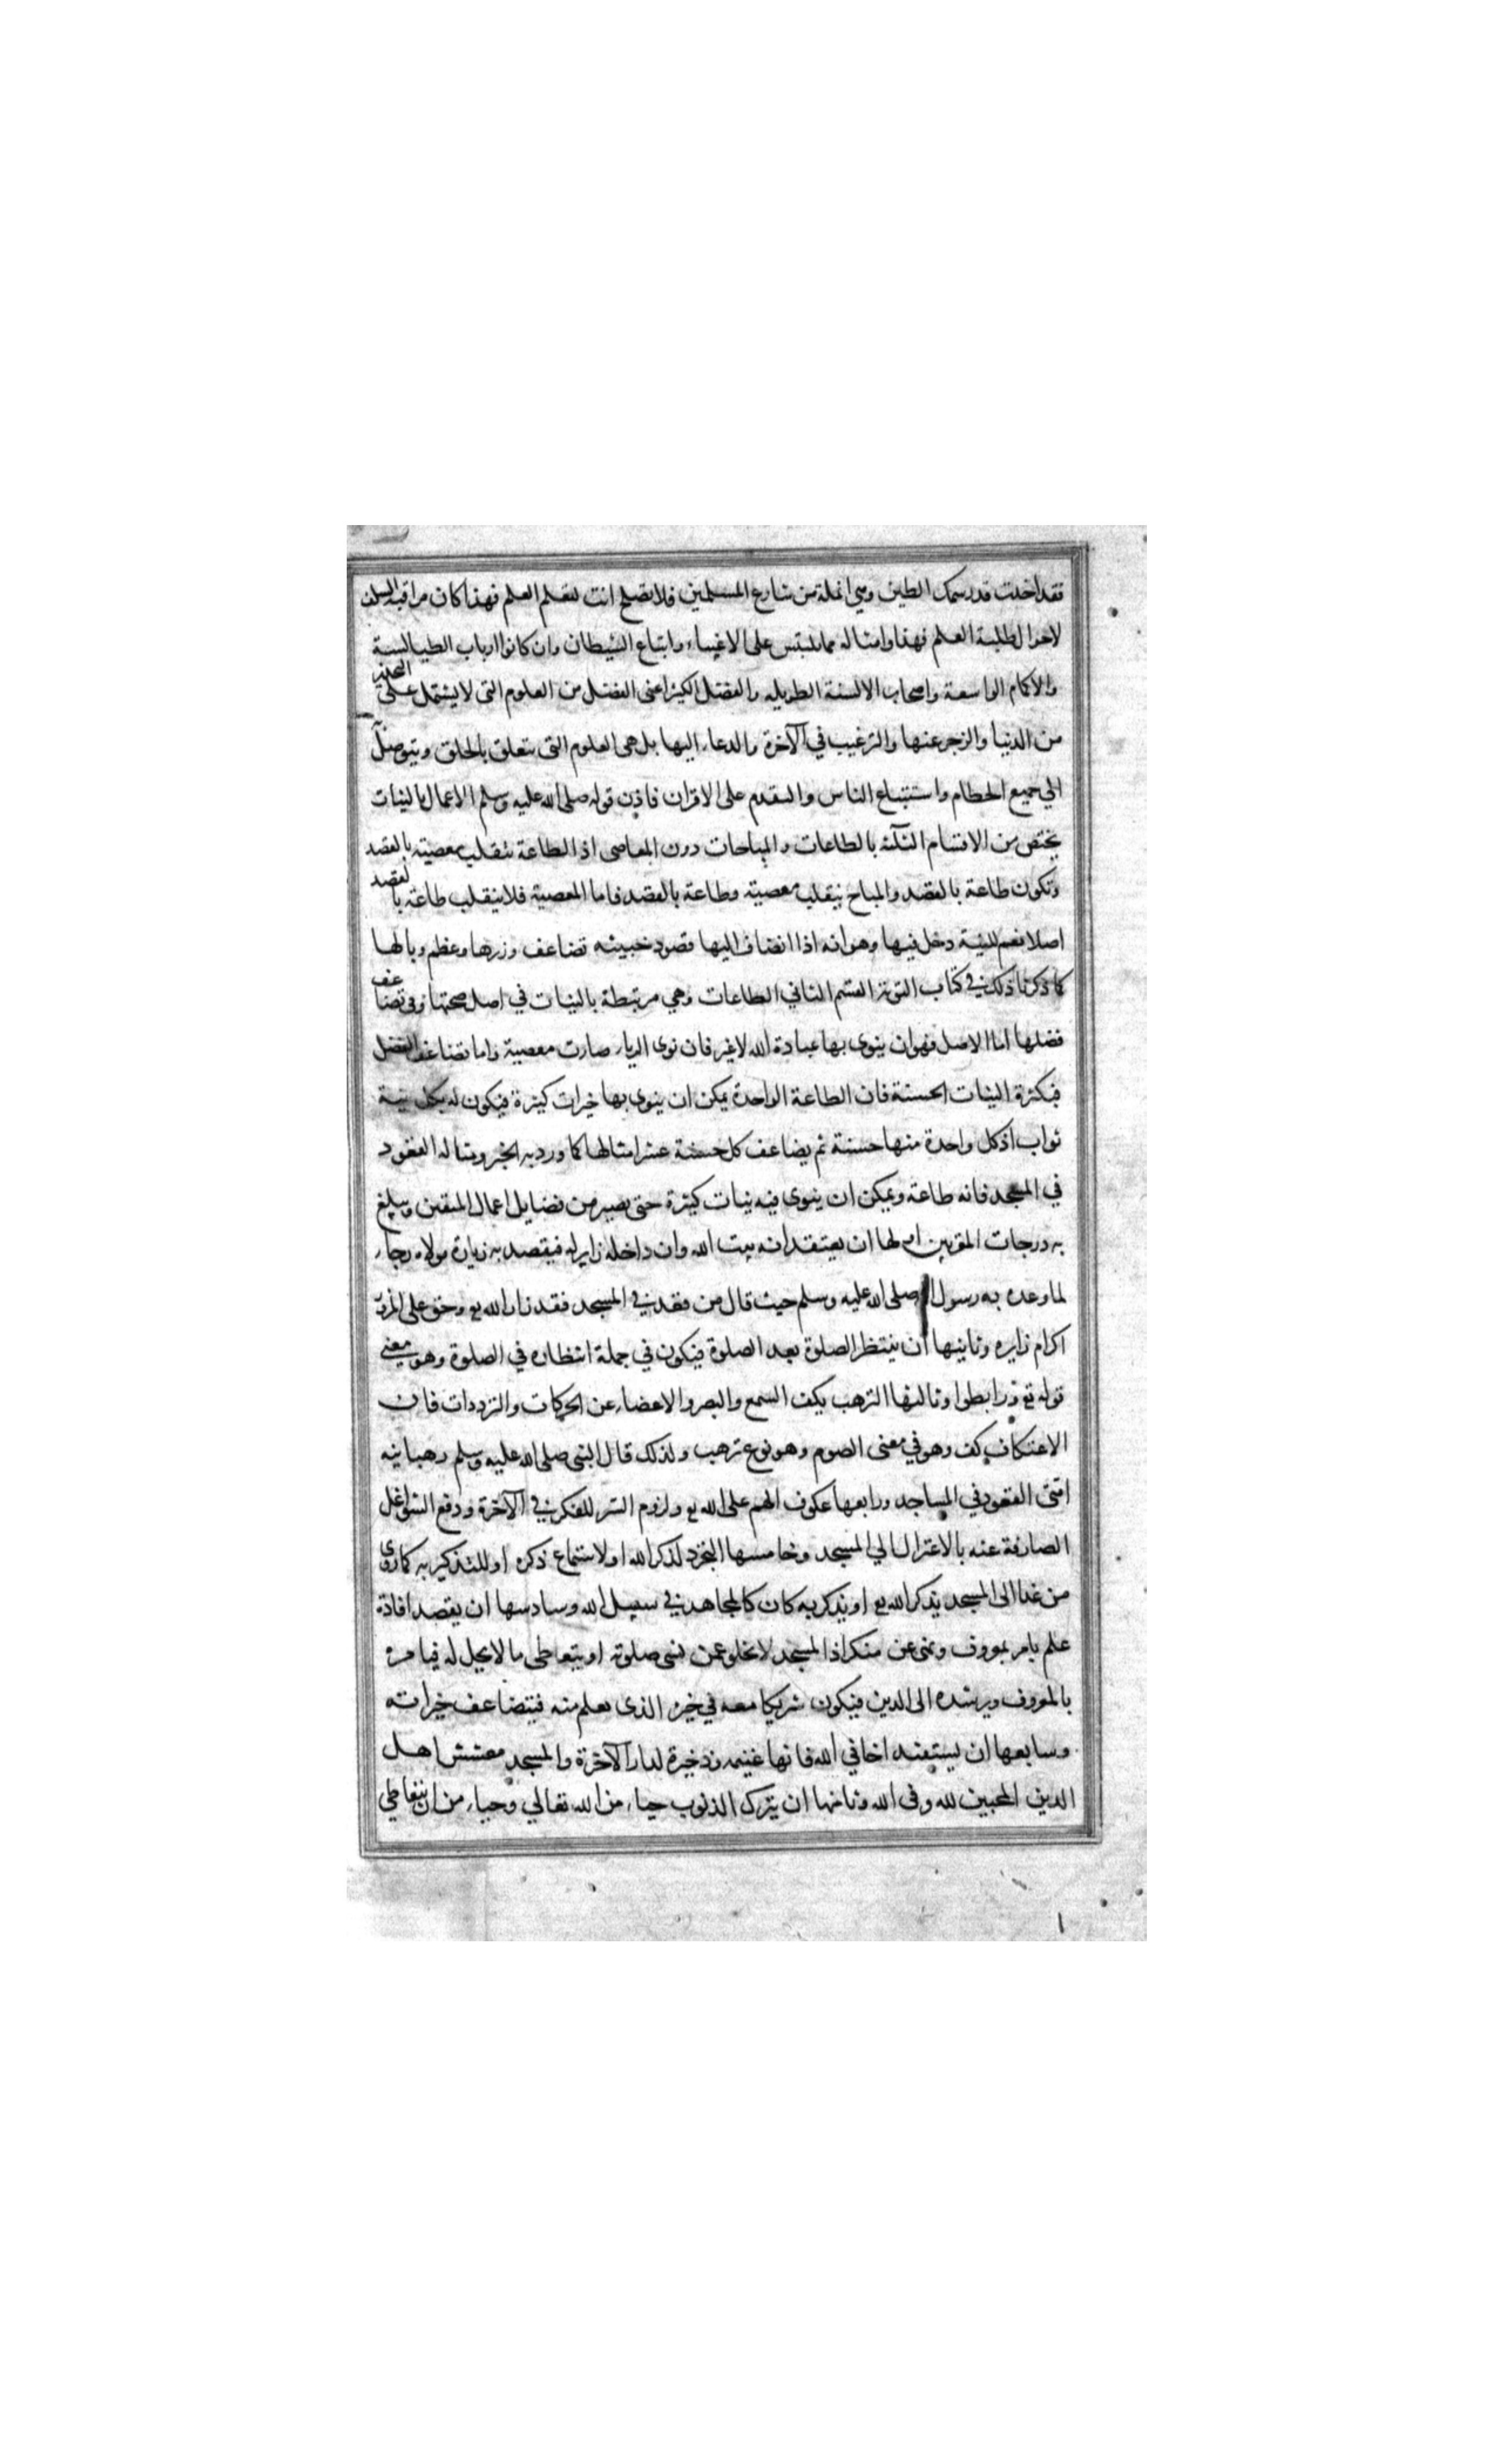 فقد اخذت قدر سمك الطين وهي انملة من شارع المسلمين فلا تصلح انت لتعلم العلم فهذا كان مراقبة السلف
لاحوال طلبة العلم فهذا وامثاله مما يلتبس على الاغبياء واتباع الشيطان وان كانوا ارباب الطيالسة
والاكمام الواسعة واصحاب الالسنة الطويله والفضل الكثير اعنى الفضل من العلوم التى لا يشتمل على التحذير
من الدنيا والزجر عنها والترغيب في الآخرة والدعاء اليها بل هى العلوم التى تتعلق بالخلق ويتوصل
الي جميع الحطام واستتباع الناس والتقدم على الاقران فاذن قوله صلى الله عليه وسلم الاعمال بالنيات
يختص من الاقسام الثلثة بالطاعات والمباحات دون المعاصى اذ الطاعة تنقلب معصيته بالقصد
وتكون طاعة بالقصد والمباح ينقلب معصية وطاعة بالقصد فاما المعصية فلا ينقلب طاعة بالقصد
اصلا نعم للنية دخل فيها وهو انه اذا انضاف اليها قصود خبيثه تضاعف وزرها وعظم وبالها
كما ذكرنا ذلك في كتاب التوبة القسم الثاني الطاعات وهي مرتبطة بالنيات في اصل صحتها وفى تضاعف
فضلها اما الاصل فهو ان ينوى بها عبادة الله لا غير فان نوى الرياء صارت معصية واما تضاعف الفضل
فبكثرة النيات الحسنة فان الطاعة الواحدة يمكن ان ينوى بها خيرات كثيرة فيكون له بكل نية
ثواب اذ كل واحدة منها حسنة ثم يضاعف كل حسنة عشر امثالها كما ورد به الخبر ومثاله القعود
في المسجد فانه طاعة ويمكن ان ينوى فيه نيات كثيرة حتى يصير من فضايل اعمال المتقين ويبلغ
به درجات المقربين اولها ان يعتقد انه بيت الله وان داخله زاير له فيقصد به زيارة مولاه رجاء
لما وعده به رسول صلى الله عليه وسلم حيث قال من قعد في المسجد فقد زار الله تع وحق على المزور
اكرام زايره وثانيها ان ينتظر الصلوة بعد الصلوة فيكون في جملة انتظاره في الصلوة وهو معنى
قوله تع ورابطوا وثالثها الترهب بكف السمع والبصر والاعضاء عن الحركات والترددات فان
الاعتكاف كف وهو في معنى الصوم وهو نوع ترهب ولذلك قال النبى صلى الله عليه وسلم رهبانيه
امتى القعود في المساجد ورابعها عكوف الهم على الله تع ولزوم السر للفكر في الآخرة ودفع الشواغل
الصارفة عنه بالاعتزال الي المسجد وخامسها التجرد لذكر الله او لاستماع ذكره او للتذكير به كما روى
من غدا الى المسجد يذكر الله تع او يذكر به كان كالمجاهد في سبيل الله وسادسها ان يقصد افادة
علم بامر بمعروف ونهى عن منكر اذ المسجد لا يخلو عمن نسى صلوته او يتعاطى ما لا يحل له فيامره
بالمعروف ويرشده الى الدين فيكون شريكا معه في خير الذى يعلم منه فيتضاعف خيراته
وسابعها ان يستفيد اخا في الله فانها غنيمه وذخيرة لدار الآخرة والمسجد معشش اهل
الدين المحبين لله وفى الله وثامنها ان يترك الذنوب حياء من الله تعالي وحياء من ان يتعاطي